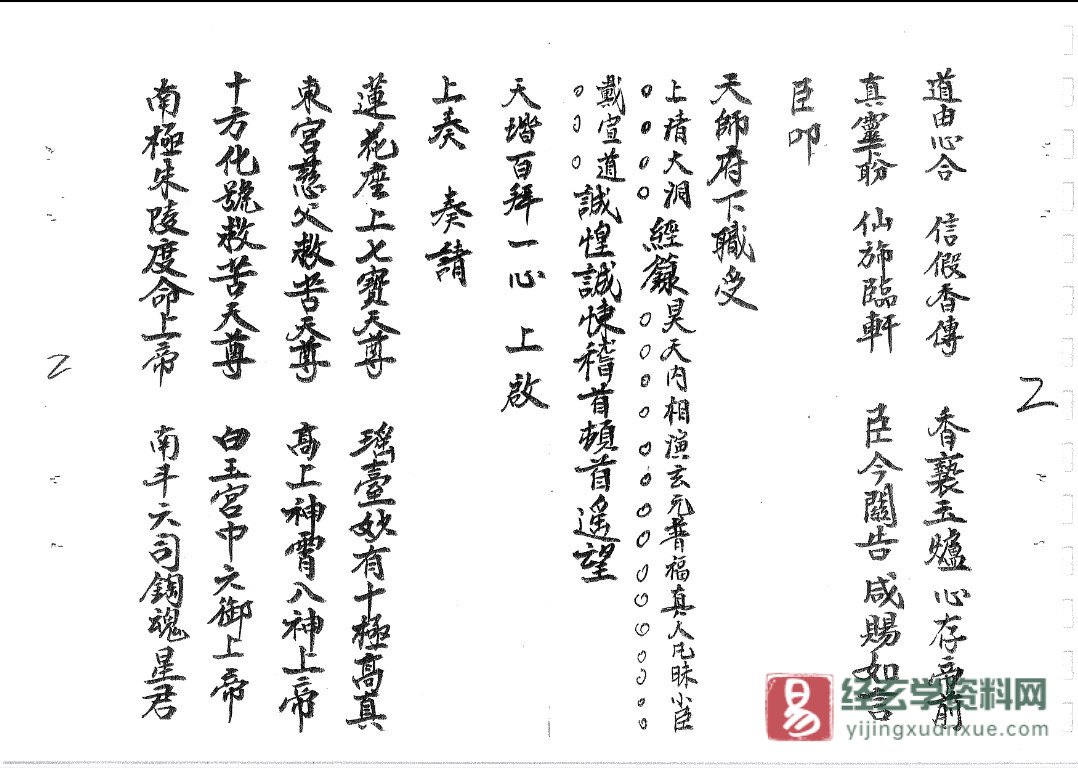 2
道由心合　信假香傳　香爇玉爐心存帝前
真靈盼　仙斾臨軒　臣今關告咸賜如言
臣叩
天師府下職受
上清大洞經籙昊天內相演玄元普福真人凡昧小臣
戴宣道誠惶誠悚稽首頓首遥望
天堦百拜一心　上啟
上奏　奏請
蓮花座上七寶天尊　瑶臺妙有十極高真
東宮慈父救苦天尊　高上神霄八神上帝
十方化號救苦天尊　白玉宮中六御上帝
南極朱陵度命上帝　南斗六司鍊魂星君
2
易 经玄学资料网
yijingxuanxue.com